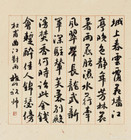 城上春雲覆苑墙江
亭晚色静年芳林花
著雨燕脂落水荇牽
風翠帶長龍武新軍
深駐輦芙蓉別殿
焚香何時詔此金錢
會暫醉佳人錦瑟傍
杜甫曲江對雨